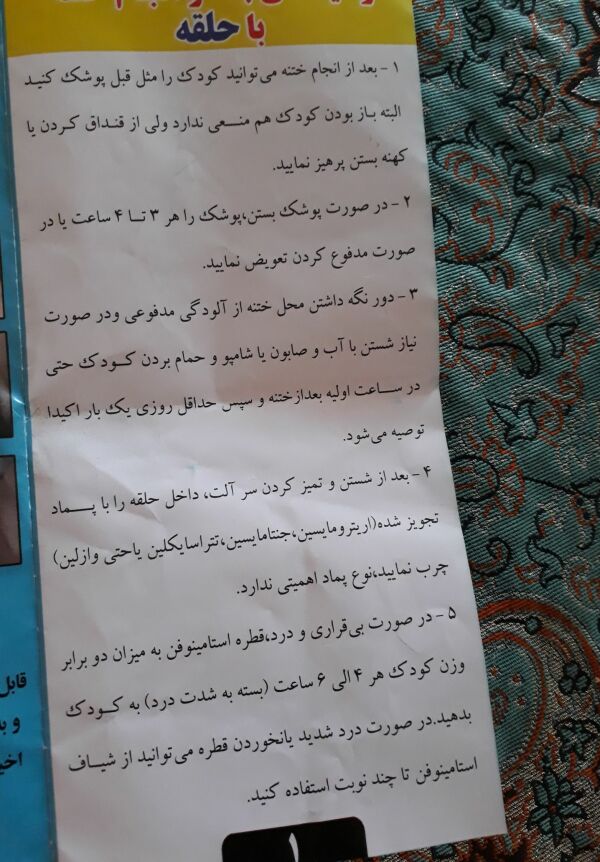 با حلقه
۱- بعد از انجام ختنه می‌توانید کودک را مثل قبل پوشک کنید
البته باز بودن کودک هم منعی ندارد ولی از قنداق کردن یا
کهنه بستن پرهیز نمایید.
۲- در صورت پوشک بستن،پوشک را هر ۳ تا ۴ ساعت یا در
صورت مدفوع کردن تعویض نمایید.
۳- دور نگه داشتن محل ختنه از آلودگی مدفوعی ودر صورت
نیاز شستن با آب و صابون یا شامپو و حمام بردن کودک حتی
در ساعت اولیه بعدازختنه و سپس حداقل روزی یک بار اکیدا
توصیه می‌شود.
۴- بعد از شستن و تمیز کردن سر آلت، داخل حلقه را با پماد
تجویز شده(اریترومایسین،جنتامایسین،تتراسایکلین یاحتی وازلین)
چرب نمایید،نوع پماد اهمیتی ندارد.
۵- در صورت بی‌قراری و درد،قطره استامینوفن به میزان دو برابر
وزن کودک هر ۴ الی ۶ ساعت (بسته به شدت درد) به کودک
بدهید.در صورت درد شدید یانخوردن قطره می‌توانید از شیاف
استامینوفن تا چند نوبت استفاده کنید.
۱
قابل
و به